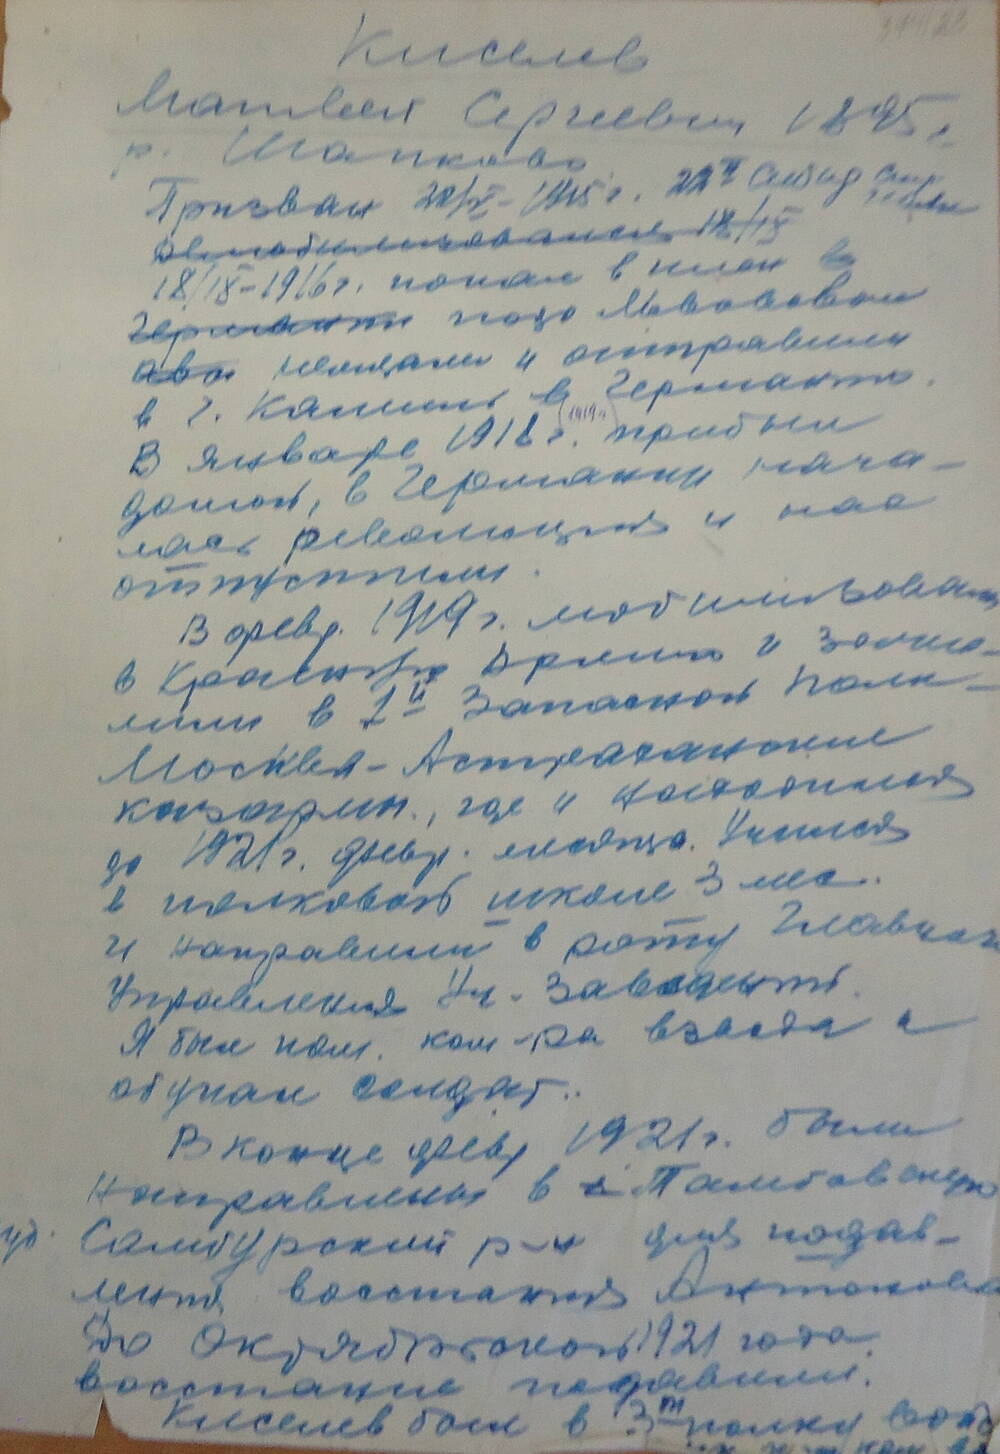 Киселев
Матвей Сергеевич 1895 г.
р. Шапково
Призван 22/V-1915 г. 22й Сибир. стр.
полк
демобилизовался 18/IX
18/IX-1916 г. попал в плен в
Германию под Львовом
авс немцами и отправили
в г. в Германию.
В январе 1918 г. (1919 г.) прибыл
домой, в Германии нача-
лась революция и нас
отпустили.
В февр. 1919 г. мобилизовали
в Красную Армию и зачис-
лили в 2й Запасной полк -
Москва - Астраханские
казармы, где и находился
до 1921 г. февр. месяца. Учился
в полковой школе 3 мес.
и направили в роту Главного
Управления Уч. Заведений.
Я был пом. ком-ра взвода и
обучал солдат.
В конце февр 1921 г. были
направлены в Тамбовскую
губ. Самбурский р-н для подав-
ления восстания Антонова
До Октябрьской 1921 года
восстание подавили.
Киселев был в 3м полку